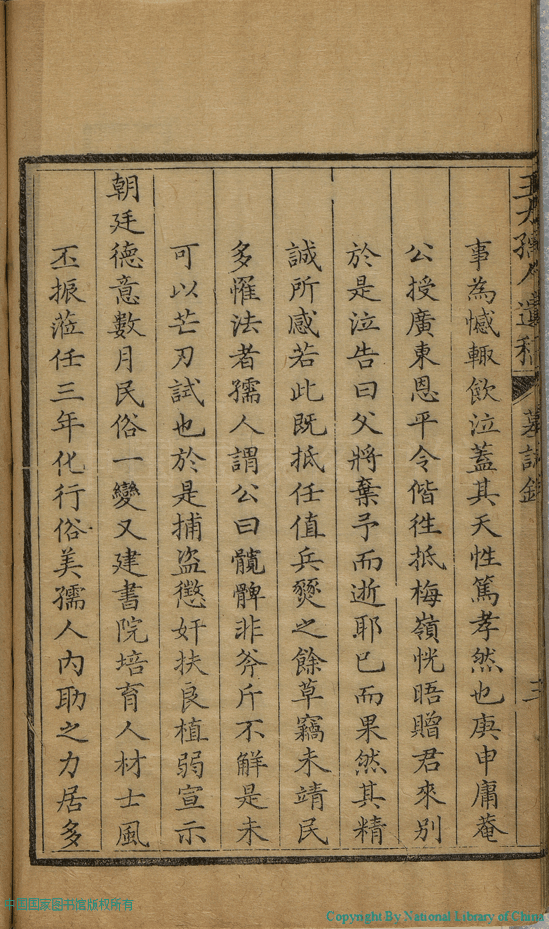 孺人遺稿 墓誌銘 三
事為憾輙飲泣蓋其天性篤孝然也庚申庸菴
公授廣東恩平令偕徃抵梅嶺恍晤贈君來別
於是泣告曰父將棄予而逝耶已而果然其精
誠所感若此既抵任值兵燹之餘草竊未靖民
多惟法者孺人謂公曰髖髀非斧斤不觧是未
可以芒刃試也於是捕盜懲奸扶良植弱宣示
朝廷德意數月民俗一變又建書院培育人材士風
丕振蒞任三年化行俗美孺人內助之力居多
中国国家图书馆版权所有
Copyright By National Library of China